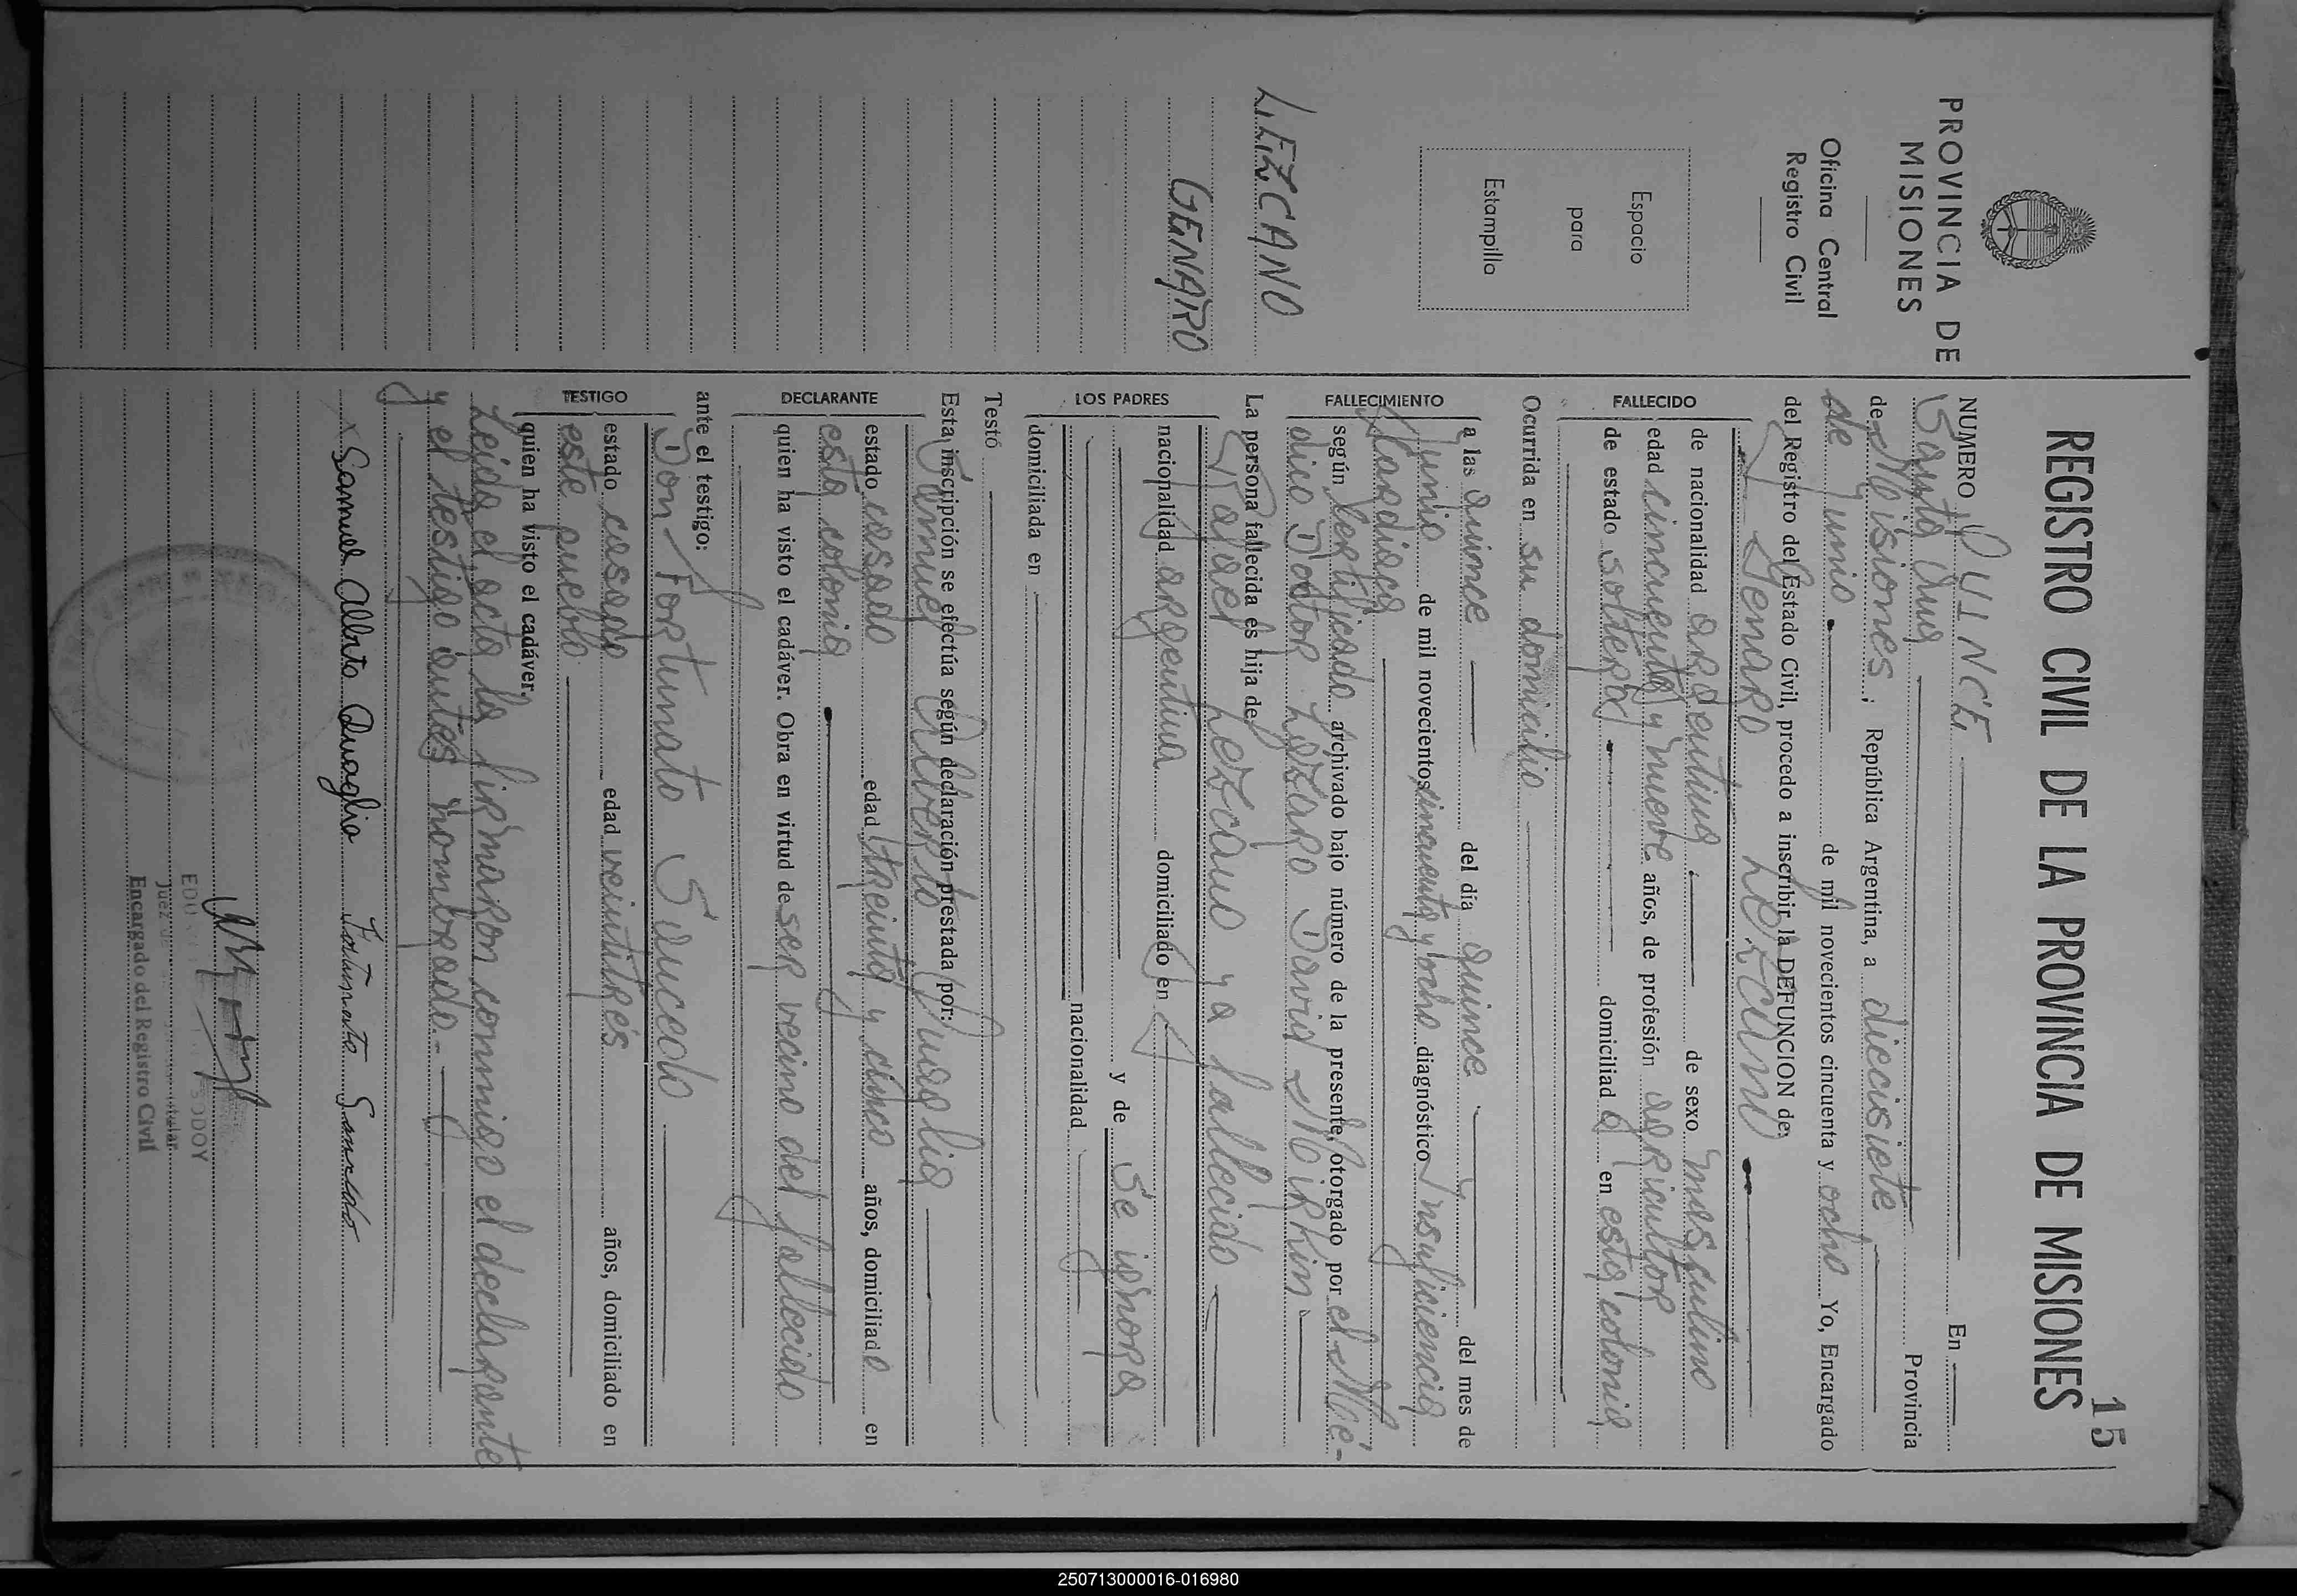 15
REGISTRO CIVIL DE LA PROVINCIA DE MISIONES
PROVINCIA DE
MISIONES
Oficina Central
Registro Civil
Espacio
para
Estampilla
LEZCANO
GENARO
NUMERO QUINCE, En
Santa Ana Provincia
de Misiones, República Argentina, a diecisiete
de Junio de mil novecientos cincuenta y ocho Yo, Encargado
del Registro del Estado Civil, procedo a inscribir la DEFUNCION de:
Genaro Lezcano
FALLECIDO
de nacionalidad argentina de sexo masculino
edad cincuenta y nueve años, de profesión agricultor
de estado soltero domiciliad o en esta colonia
Ocurrida en su domicilio
FALLECIMIENTO
a las quince del día quince del mes de
Junio de mil novecientos cincuenta y ocho diagnóstico Insuficiencia
Cardiaca
según certificado archivado bajo número de la presente, otorgado por el Mé-
dico Doctor Lázaro David Mirkin
La persona fallecida es hija de
LOS PADRES
Lezcano ya fallecido
nacionalidad argentina domiciliado en
y de Se ignora
nacionalidad
domiciliada en
Testó
Esta inscripción se efectúa según declaración prestada por:
DECLARANTE
Samuel Alberto Quaglia
estado casado edad treinta y cinco años, domiciliado en
esta colonia
quien ha visto el cadáver. Obra en virtud de ser vecino del fallecido
ante el testigo:
TESTIGO
Don Fortunato Saucedo
estado casado edad veintitrés años, domiciliado en
este pueblo
quien ha visto el cadáver.
Leída el acta la firmaron conmigo el declarante
y el testigo antes nombrado.-
Samuel Alberto Quaglia Fortunato Saucedo
Encargado del Registro Civil
250713000016-016980